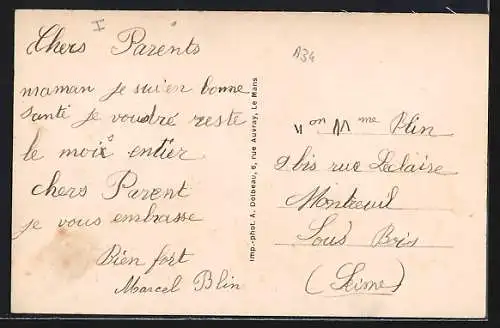 I
A34
Chers Parents
maman je sui en bonne
santé je voudré reste
le mois entier
chers Parent
je vous embrasse
Bien fort
Marcel Blin
imp.-phot. A. Dolbeau, 6, rue Auvray, Le Mans
Mme Plin
9 bis rue
Montreuil
Sous Bois
(Seine)